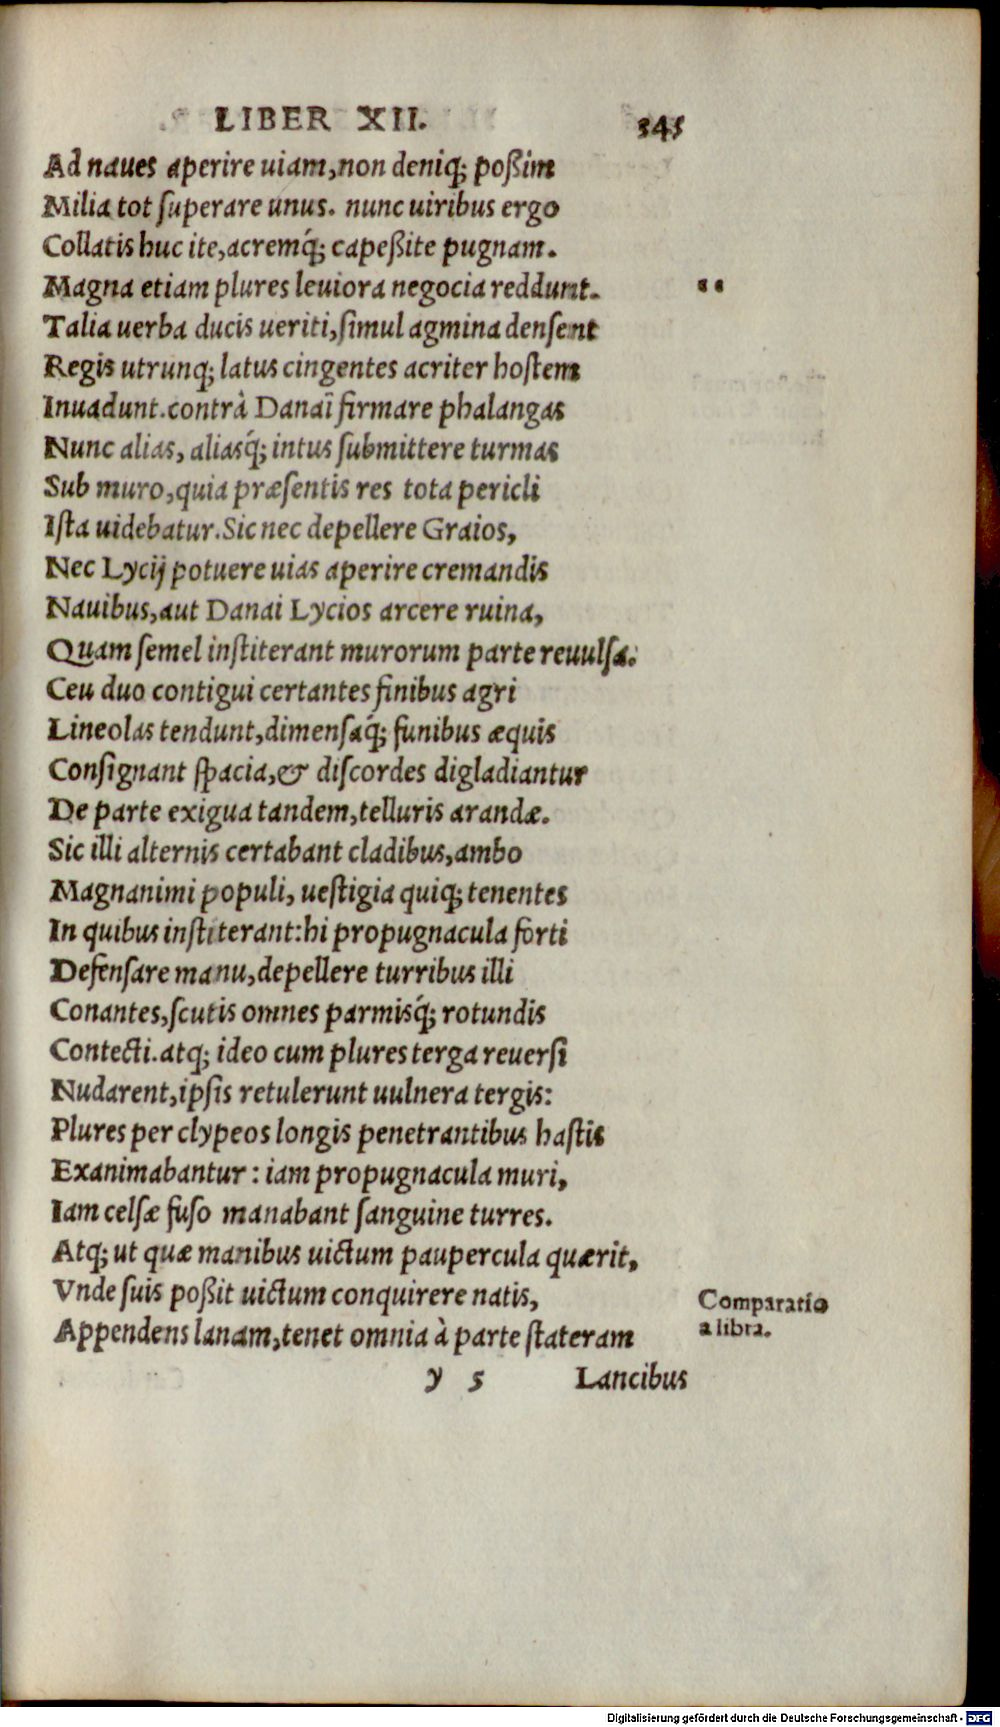 LIBER XII. 345
Ad naues aperire uiam, non deniq; poßim
Milia tot ſuperare unus. nunc uiribus ergo
Collatis huc ite, acremq́; capeßite pugnam.
Magna etiam plures leuiora negocia reddunt. "
Talia uerba ducis ueriti, ſimul agmina denſent
Regis utrunq; latus cingentes acriter hoſtem
Inuadunt. contrà Danaī firmare phalangas
Nunc alias, aliasq́; intus ſubmittere turmas
Sub muro, quia præſentis res tota pericli
Iſta uidebatur. Sic nec depellere Graios,
Nec Lycij potuere uias aperire cremandis
Nauibus, aut Danai Lycios arcere ruina,
Quam ſemel inſtiterant murorum parte reuulſa.
Ceu duo contigui certantes finibus agri
Lineolas tendunt, dimenſaq́; funibus æquis
Conſignant ſpacia, & diſcordes digladiantur
De parte exigua tandem, telluris arandæ.
Sic illi alternis certabant cladibus, ambo
Magnanimi populi, ueſtigia quiq; tenentes
In quibus inſtiterant: hi propugnacula forti
Defenſare manu, depellere turribus illi
Conantes, ſcutis omnes parmisq́; rotundis
Contecti. atq; ideo cum plures terga reuerſi
Nudarent, ipſis retulerunt uulnera tergis:
Plures per clypeos longis penetrantibus haſtis
Exanimabantur: iam propugnacula muri,
Iam celſæ fuſo manabant ſanguine turres.
Atq; ut quæ manibus uictum paupercula quærit,
Vnde ſuis poßit uictum conquirere natis,
Appendens lanam, tenet omnia à parte ſtateram
Comparatio
a libra.
y 5 Lancibus
Digitalisierung gefördert durch die Deutsche Forschungsgemeinschaft - DFG